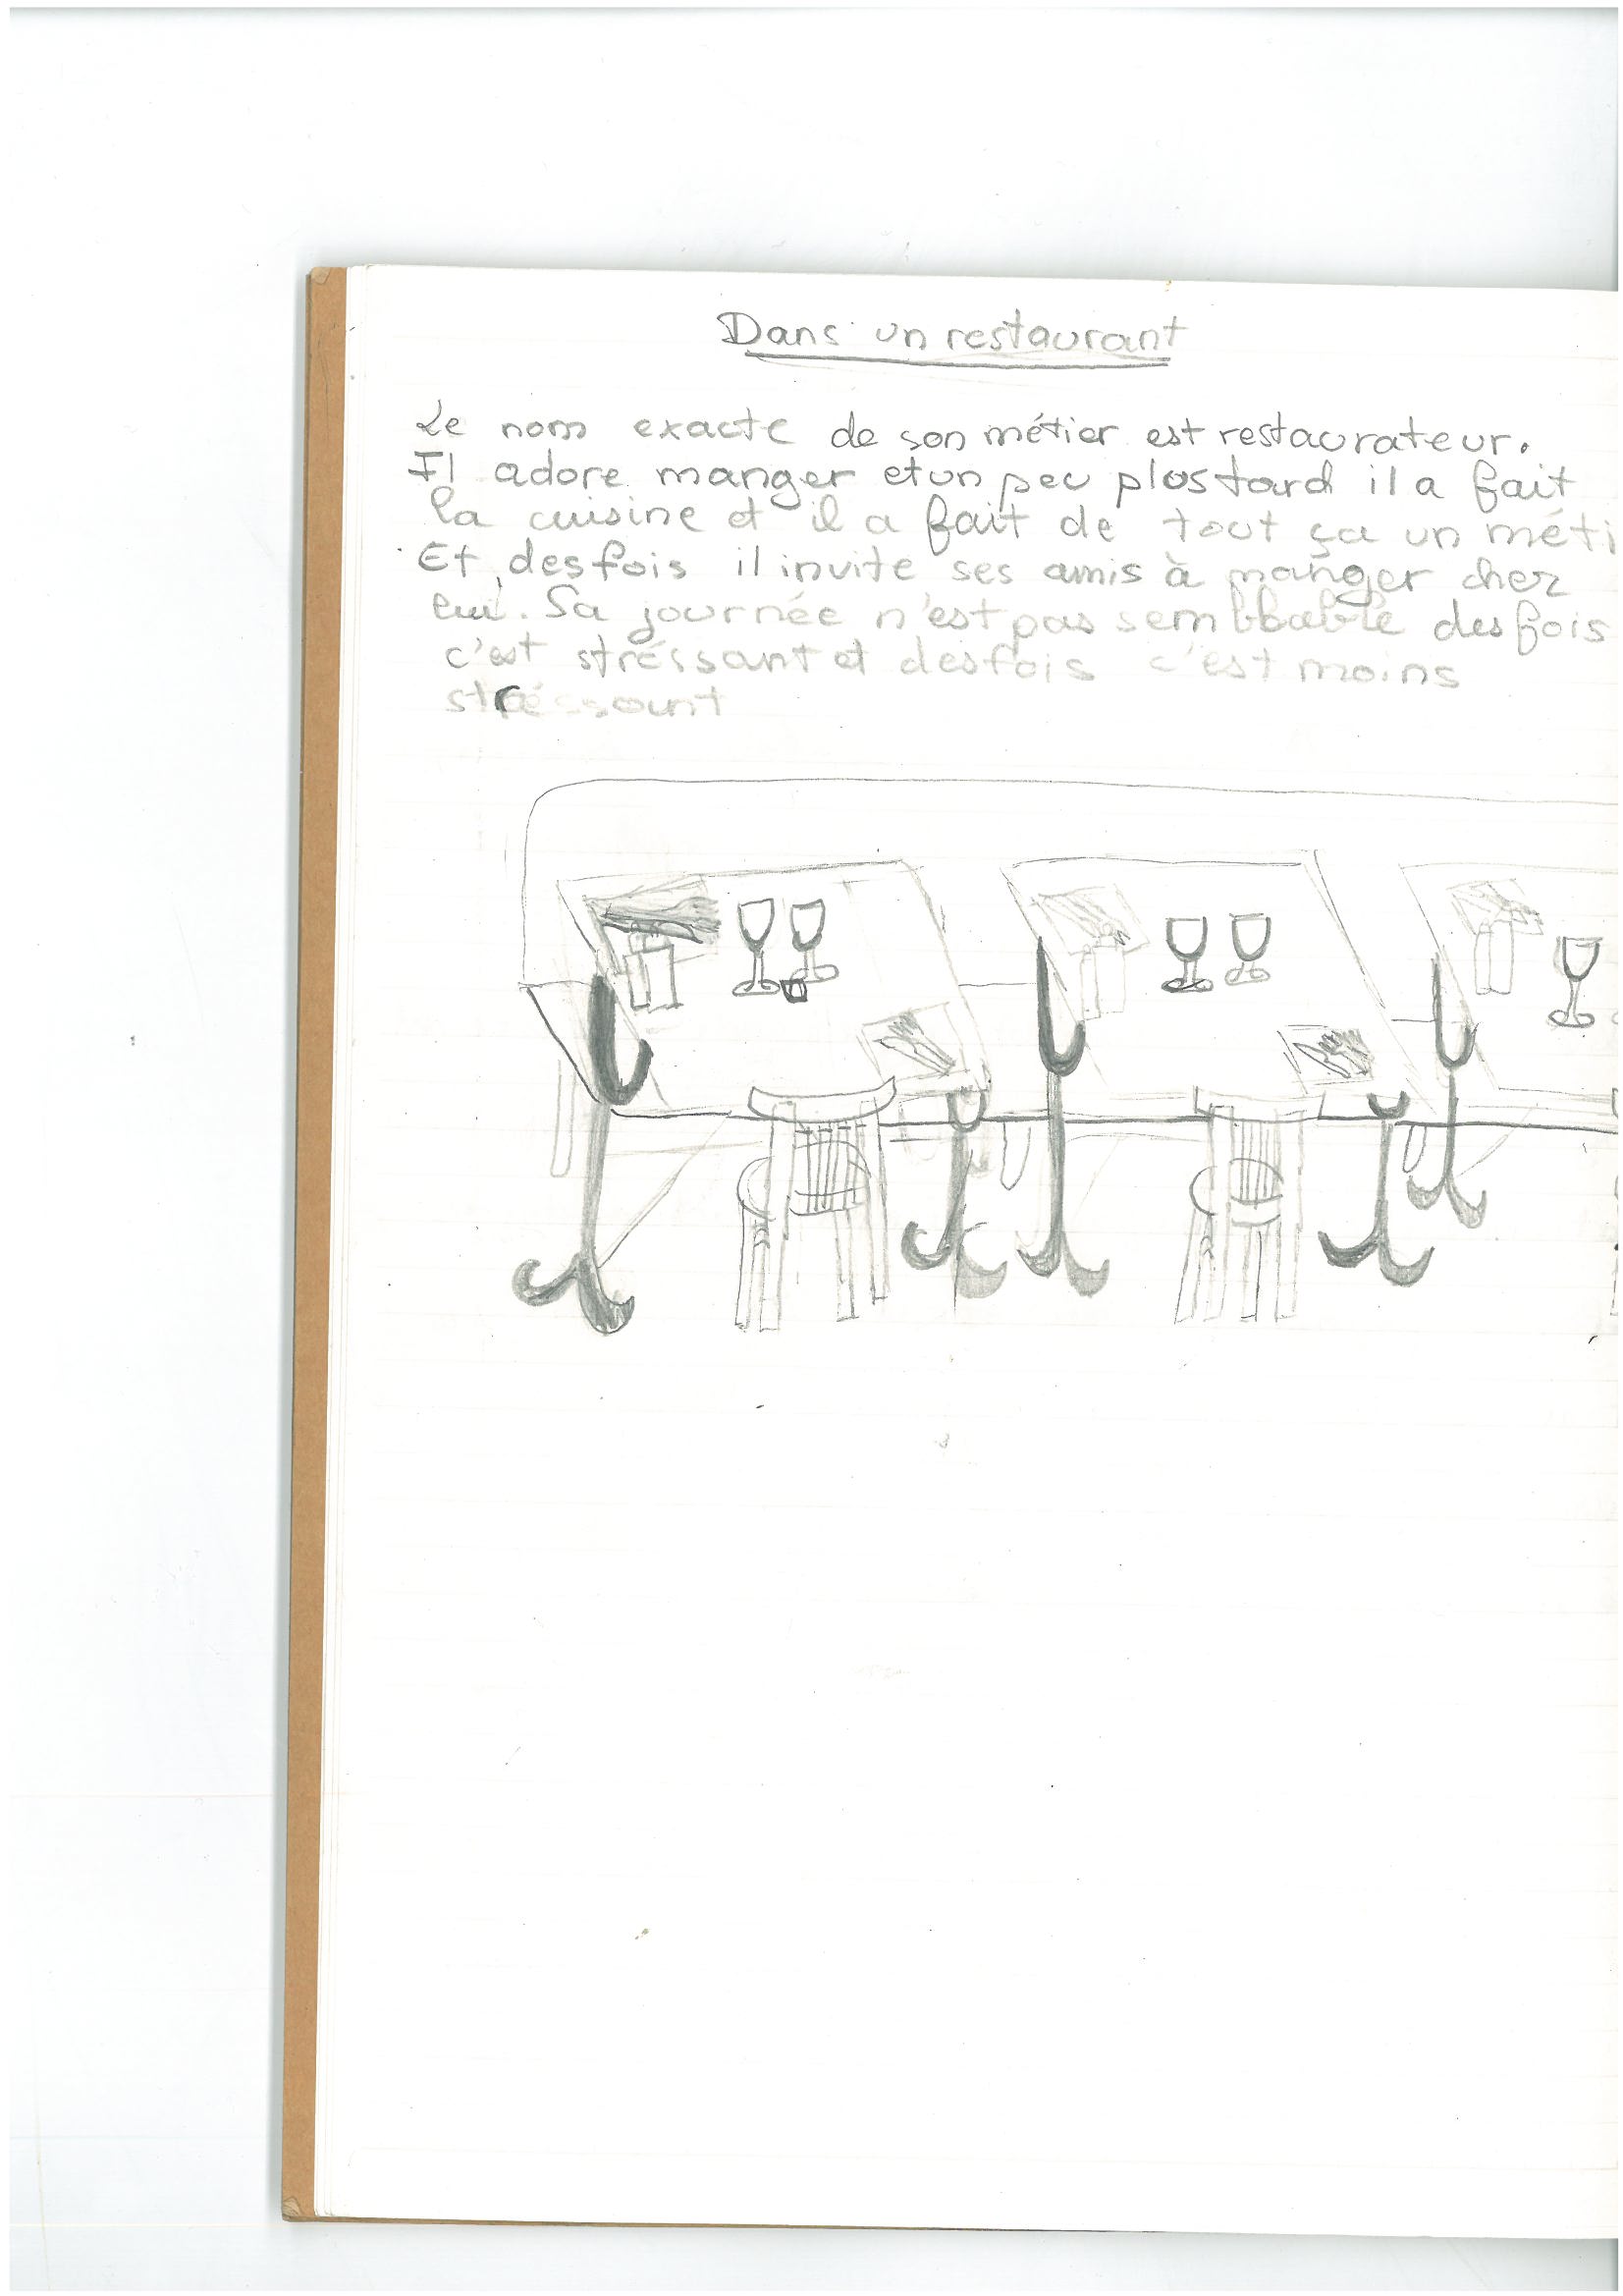 Dans un restaurant
Le nom exacte de son métier est restaurateur.
Il adore manger et un peu plus tard il a fait
la cuisine et il a fait de tout ça un méti
Et, des fois il invite ses amis à manger chez
lui. Sa journée n'est pas semblable des fois
c'est stréssant et des fois c'est moins
stréssant